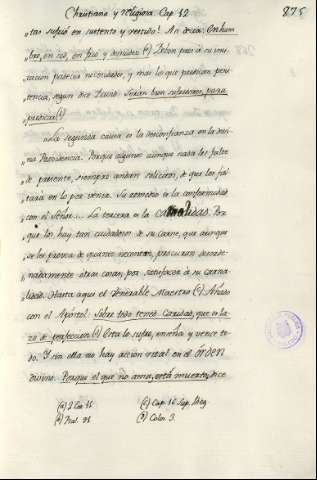 Christiana y religiosa. Cap. 12
875
„tas sufrió en sustento y vestido! Así decía: En ham
„bre, en sed, en frio y desnudez (a) Deban pues á su imi-
„tación padecer necesidades, y más los que predican peni-
„tencia, segun dice David: Serán bien sufridos, para
„predicar (b)
„La segunda causa es la desconfianza en la divi-
„na Providencia. Porque algunos aunque nada les falte
„de presente, siempre andan solícitos, de que les fal-
„tará en lo por venir. Su remedio es la conformidad
„con el Señor... La tercera es la Por
„que los hay tan cuidadosos de su carne, que aunque
„se les provea de quanto necesitan, procuran desorde-
„nadamente otras cosas, por satisfacer á su carna-
„lidad. Hasta aqui el Venerable Maestro (c) Añado
con el Apóstol: Sobre todo tened Caridad, que es la-
zo de perfeccion (d) Esta lo sufre, enseña y vence to-
do. Y sin ella no hay acción vital en el órden
divino. Porque el que no ama, está muerto, dice
(a) 2 Cor. 11 (c) Cap. 12 Sup. Reg.
(b) Psal. 91 (d) Colos. 3.